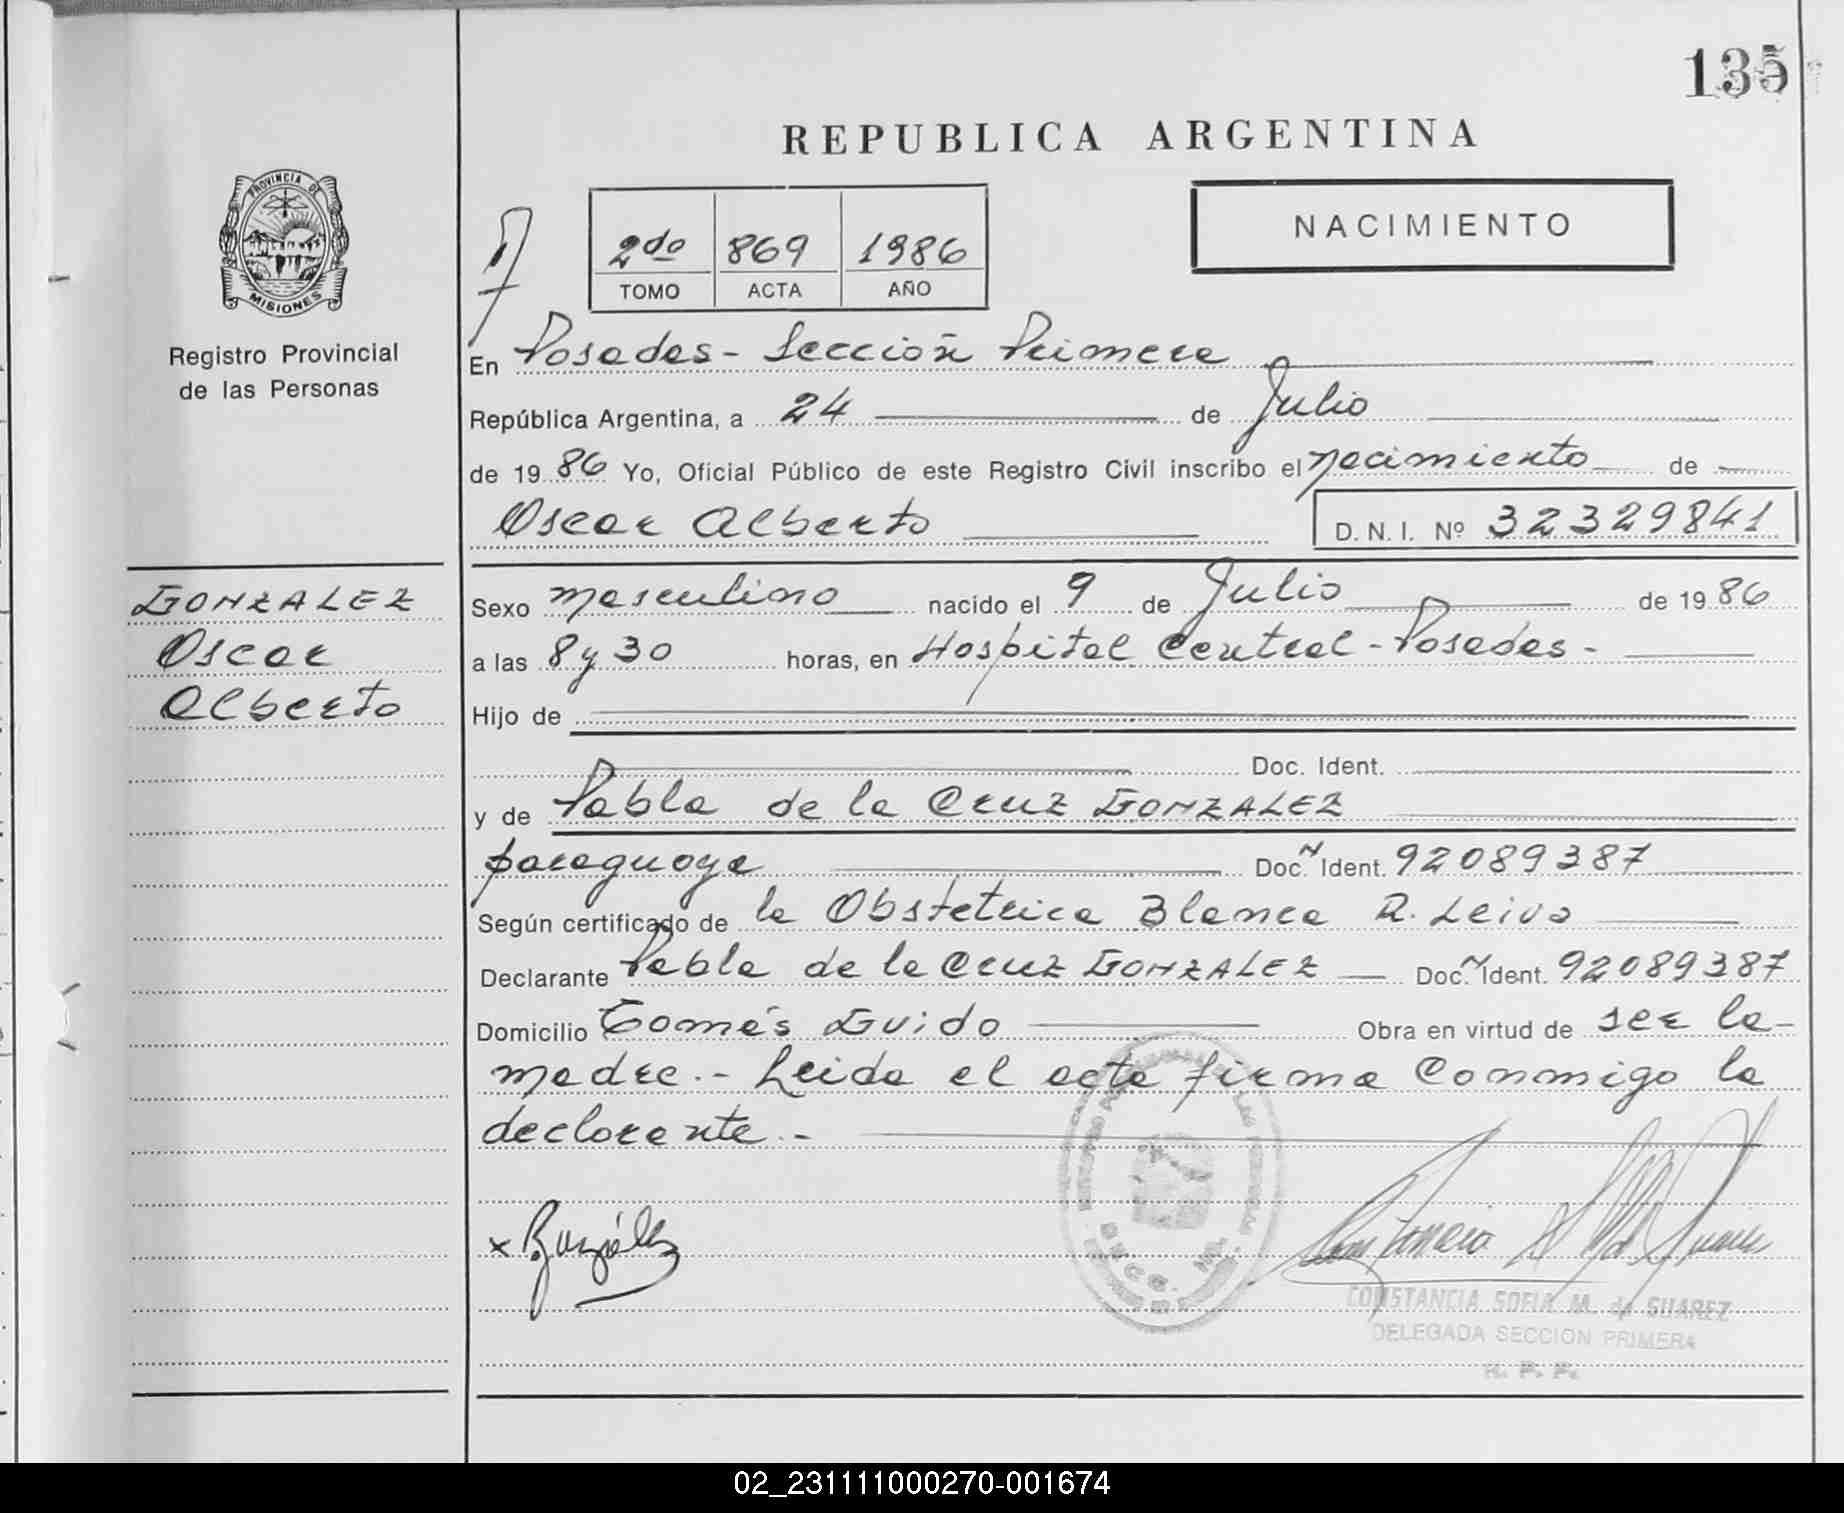 135
REPUBLICA ARGENTINA
PROVINCIA DE
MISIONES
Registro Provincial
de las Personas
2do 869 1986
TOMO ACTA AÑO
NACIMIENTO
En Posadas - Sección Primera
República Argentina, a 24 de Julio
de 1986 Yo, Oficial Público de este Registro Civil inscribo el nacimiento de
Oscar Alberto D.N.I. Nº 32329841
GONZALEZ
Oscar
Alberto
Sexo masculino nacido el 9 de Julio de 1986
a las 8 y 30 horas, en Hospital Central - Posadas -
Hijo de
Doc. Ident.
y de Pabla de la Cruz GONZALEZ
paraguaya Doc. N Ident. 92089387
Según certificado de la Obstetrica Blanca R. Leiva
Declarante Pabla de la Cruz GONZALEZ Doc. N Ident. 92089387
Domicilio Tomás Guido Obra en virtud de ser la
madre.- Leida el acta firma conmigo la
declarante.-
x P. González
CONSTANCIA SOFIA M. de SUAREZ
DELEGADA SECCION PRIMERA
R. P. P.
02_231111000270-001674